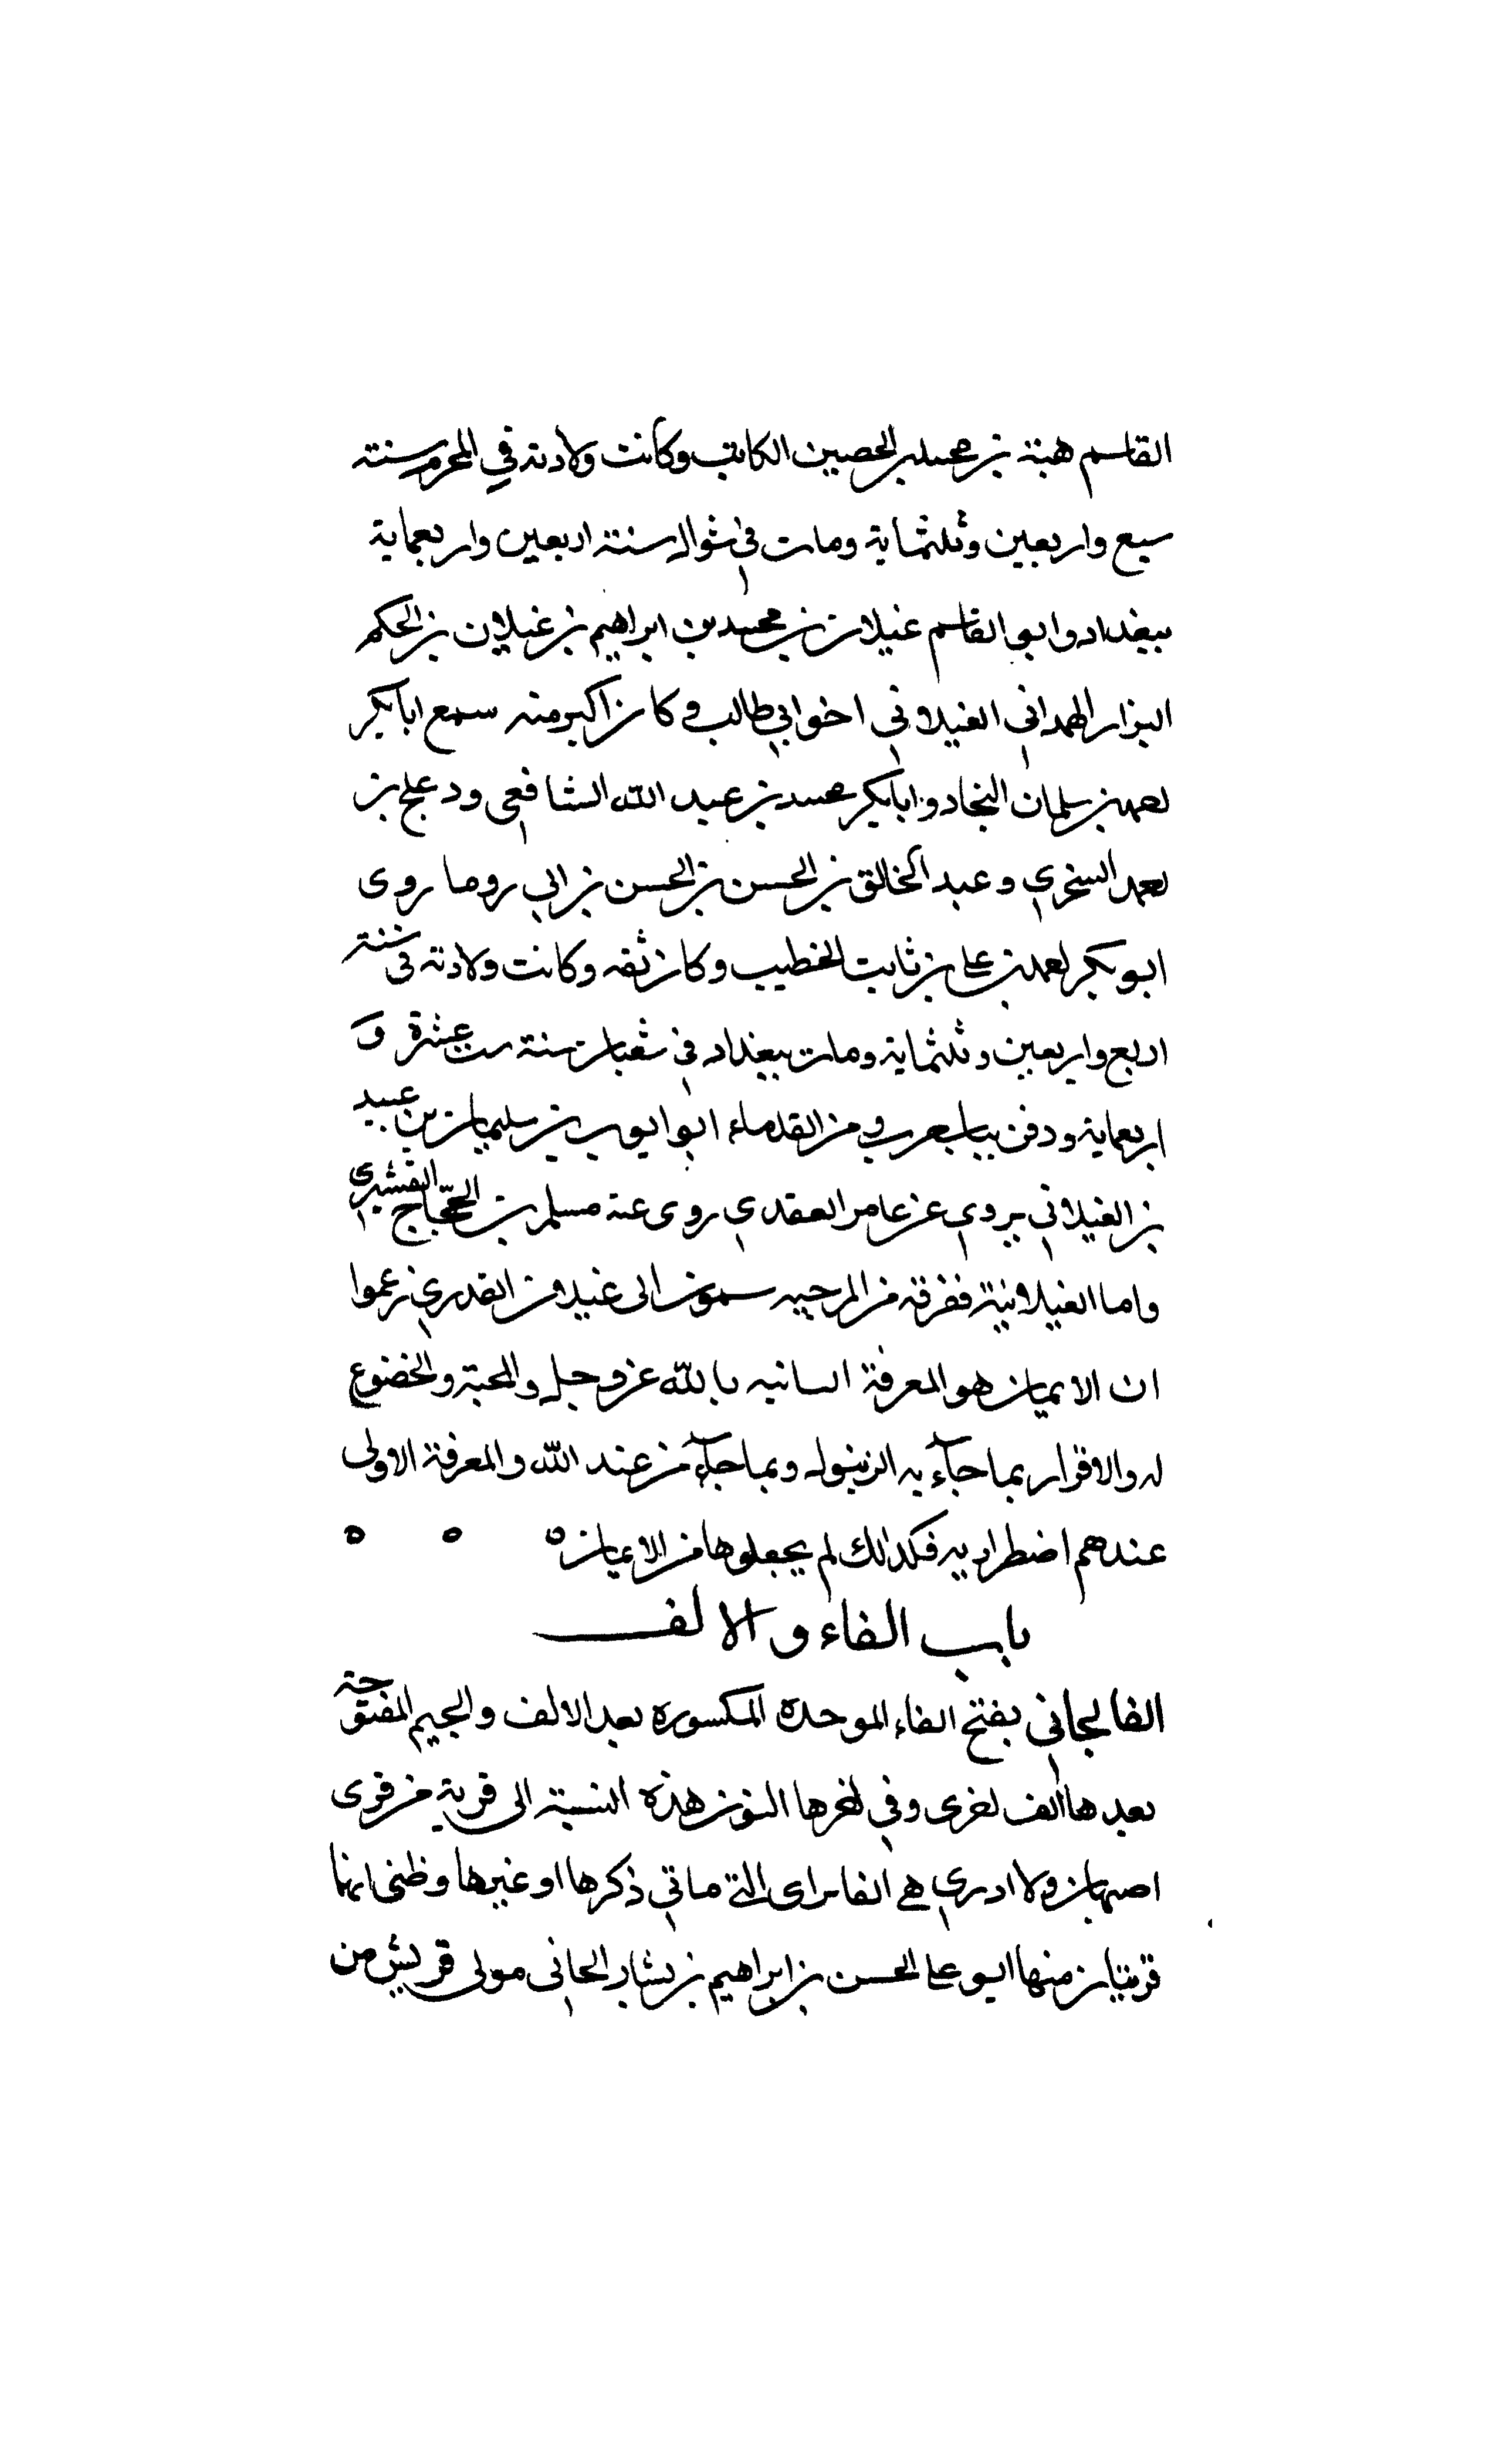 القاسم هبة بن محمد بن الحصين الكاتب وكانت ولادته في المحرم سنة
سبع واربعين وثلثماية ومات في شوال سنة اربعين واربعماية
ببغداد وابو القاسم غيلان بن محمد بن ابراهيم بن غيلان بن الحكم
البزار الهمداني الغيلاني اخو ابي طالب وكان اكبر منه سمع ابا بكر
احمد بن سلمان النجاد وابا بكر محمد بن عبد الله الشافعي ودعلج بن
احمد السنجري وعبد الخالق بن الحسن بن الحسن بن ابي روما روى
ابو بكر احمد بن علي بن ثابت الخطيب وكان ثقه وكانت ولادته في سنة
اربع واربعين وثلثماية ومات ببغداد في شعبان سنة ست عشرة و
اربعماية ودفن بباب حرب ومن القدماء ابو ايوب بن سليمان بن عبيد
بن الغيلاني يروي عن عامر العقدي روى عنه مسلم بن الحجّاج القشيري
واما الغيلانية ففرقه من المرجيه سمو الى غيلان القدري زعموا
ان الايمان هو المعرفة الثانيه بالله عز وجل والمحبة والخضوع
له والاقرار بما جآء به الرسول وبما جآء من عند الله والمعرفة الاولى
عندهم اضطراريه فكذلك لم يجعلوها من الايمان ه ه ه
باب الفاء والالف
الفابجاني بفتح الفاء الموحده المكسوره بعد الالف والجيم المفتوحة
بعدها الف اخرى وفي اخرها النون هذه النسبة الى قرية من قرى
اصبهان ولا ادري هي الفابزاى التي ماتي ذكرها او غيرها وظني انهما
قريتان منها ابو علي الحسن بن ابراهيم بن بشار الجاني مولى قريش من